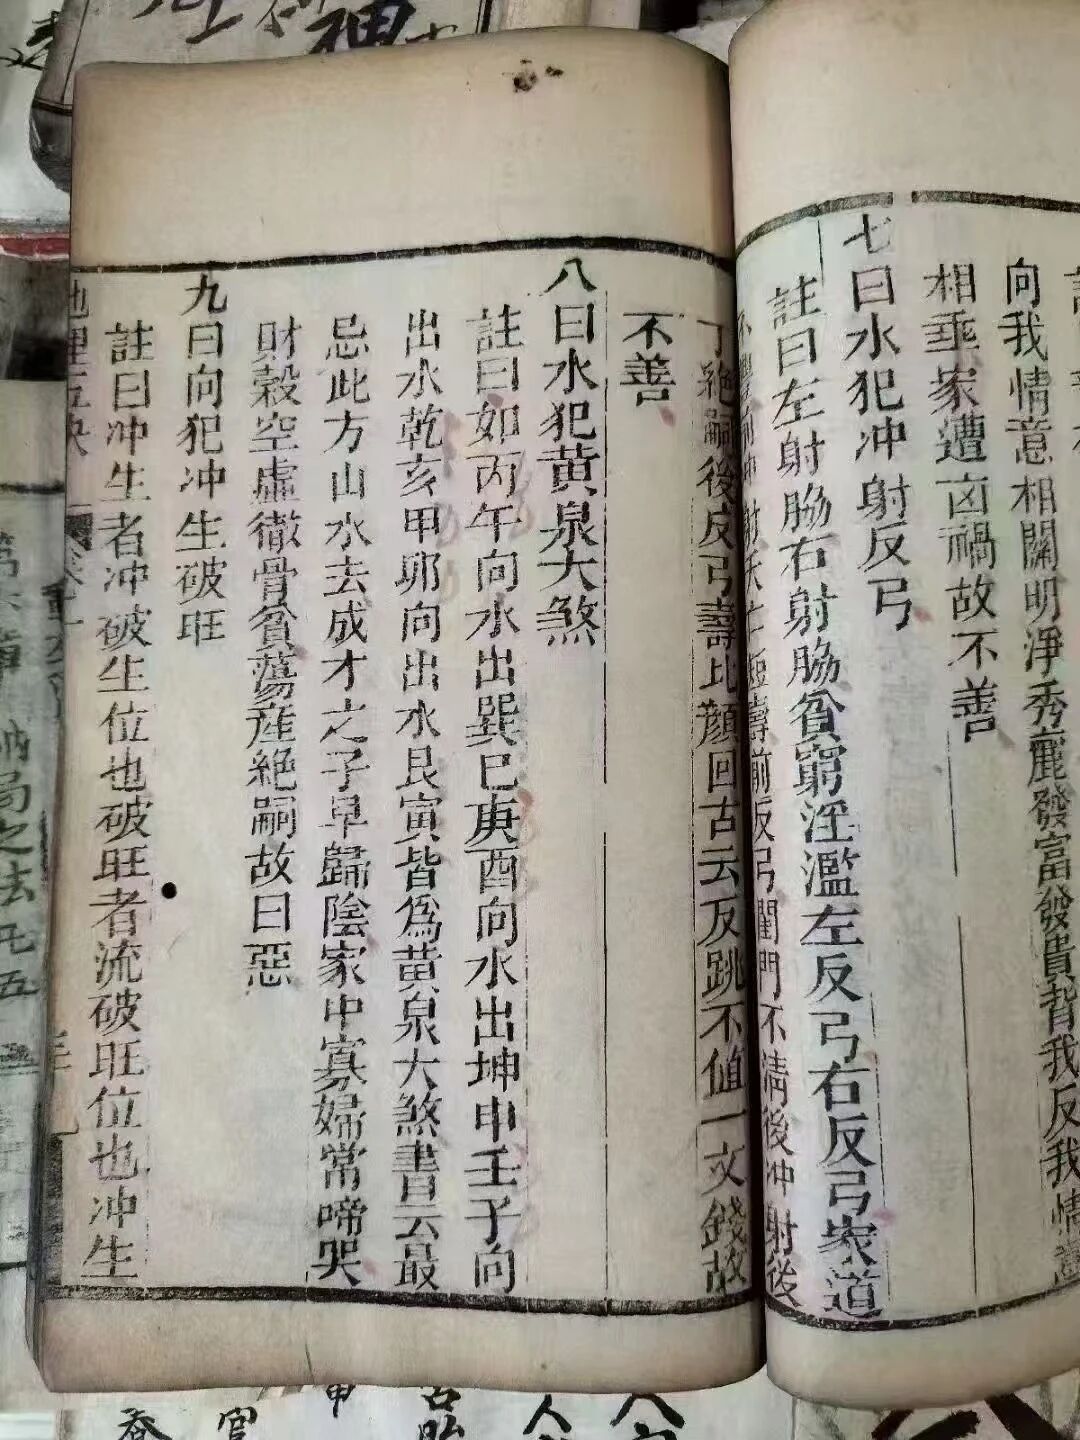 向我情意相關明淨秀麗發富發貴背我反我情意
相乖家遭凶禍故不善
七曰水犯冲射反弓
註曰左射脇右射脇貧窮淫濫左反弓右反弓家道
不興前冲射夭亡短壽前反弓閨門不清後冲射後
丁絶嗣後反弓壽比顏回古云反跳不値一文錢故
不善
八曰水犯黄泉大煞
註曰如丙午向水出巽巳庚酉向水出坤申壬子向
出水乾亥甲卯向出水艮寅皆爲黄泉大煞書云最
忌此方山水去成才之子早歸陰家中寡婦常啼哭
財穀空虛徹骨貧蕩産絶嗣故曰惡
九曰向犯冲生破旺
註曰冲生者冲破生位也破旺者流破旺位也冲生
地理五訣
納局之法凡五